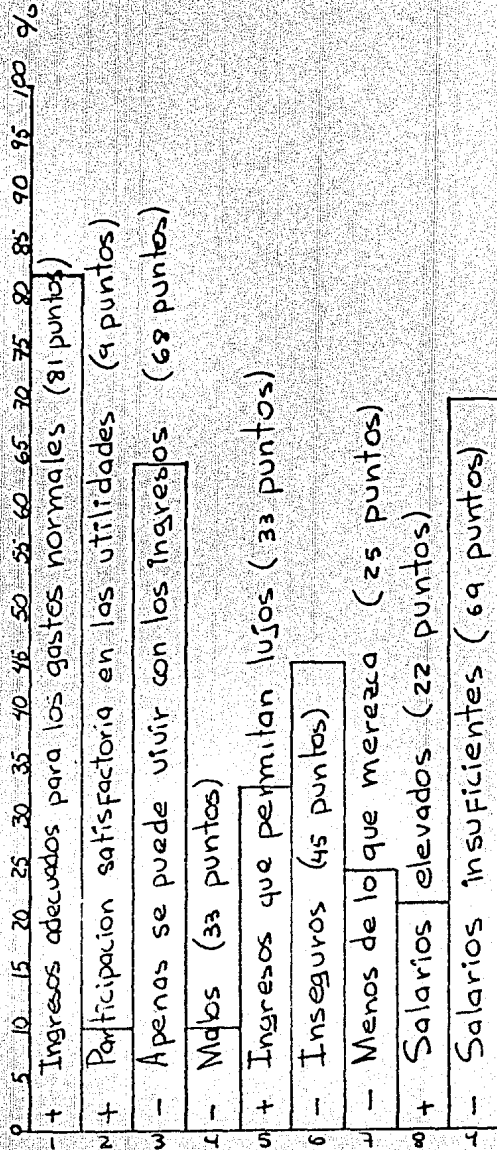 0 5 10 15 20 25 30 35 40 45 50 55 60 65 70 75 80 85 90 95 100 %
1 + Ingresos adecuados para los gastos normales (81 puntos)
2 + Participacion satisfactoria en las utilidades (9 puntos)
3 - Apenas se puede vivir con los ingresos (68 puntos)
4 - Malos (33 puntos)
5 + Ingresos que permitan lujos (33 puntos)
6 - Inseguros (45 puntos)
7 - Menos de lo que merezca (25 puntos)
8 + Salarios elevados (22 puntos)
9 - Salarios insuficientes (69 puntos)